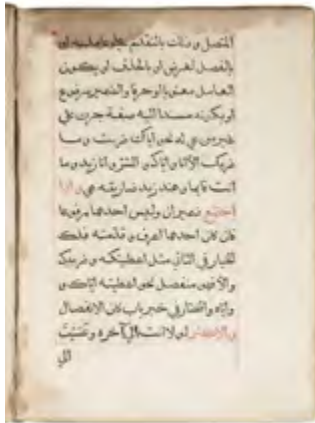 المتصل وذلك بالتقديم على عامله او
بالفصل لغرض او بالحذف او بكون
العامل معنويا او حرفا والضمير مرفوع
او بكونه مسندا اليه صفة جرت على
غير من هي له نحو اياك ضربت وما
ضربك الا انا واياك والشر وانا زيد وما
انت قايما وهند زيد ضاربته هي واذا
اجتمع ضميران وليس احدهما مرفوعا
فان كان احدهما اعرف وقدمته فلك
الخيار في الثاني مثل اعطيتكه و
والا فهو منفصل نحو اعطيته اياك و
واياه والمختار في خبر باب كان الانفصال
والاكثر لولا انت الى آخره وعسيت
الى